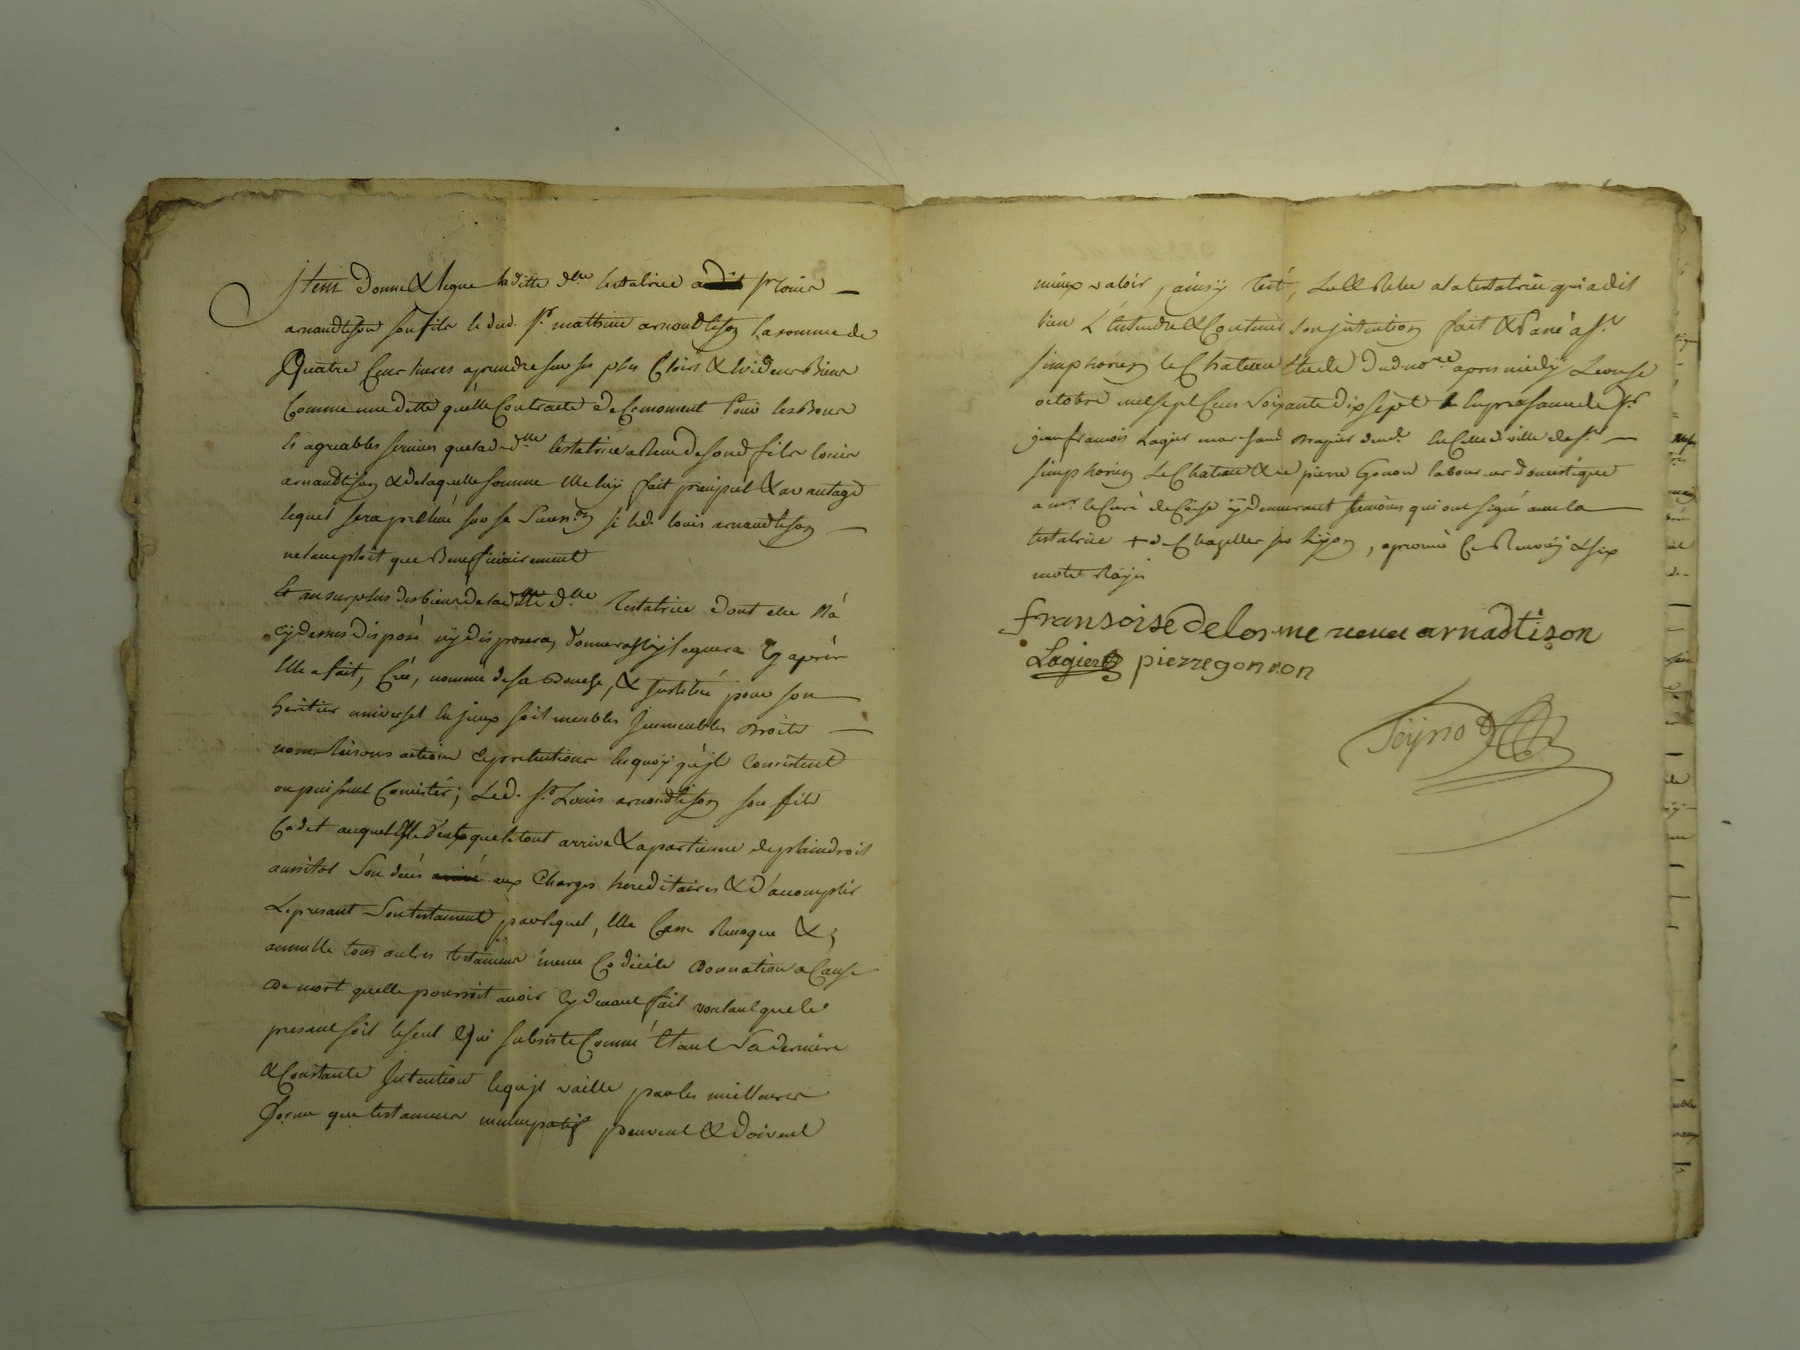 Item donne & legue laditte dlle testatrice audit sr louis
arnaudtison son fils le dud. sr. mathieu arnoudtison la somme de
Quatre Cent livres aprendre sur ses plus Clairs & lividens Biens
Comme une dette quelle Contracte de Ce moment Pour les Bons
& agreables services que lad. dlle testatrice a Reçu de sond fils louis
arnaudtison & de laquelle somme elle luy fait préciput & avantage
lequel sera prélevé sur sa Sucon. si led. louis arnaudtison
ne l'acceptoit que Beneficiairement
Et au surplus des biens de laditte dlle Testatrice dont elle N'a
cy dessus disposé ny disposera, donnera ny leguera Cy après
Elle a fait, Créé, nommé de sa Bouche, & Institué pour son
heritier universel en jceux soit meubles Immeubles Droits
noms raisons actions & prétentions en quoy qu'jls Consistent
ou puissent Consister; Led. sr. Louis arnoudtison son fils
Cadet auquel Elle Veut que le tout arrive & apartienne de plain droit
aussitot Son décés aux Charges hereditaires & d'acomplir
Le présant Son testament par lequel, Elle Casse Revoque &
annulle tous autres testamens même Codicile Donnation a Cause
De mort quelle pourroit avoir Cy devant fait voulant que le
présant soit le seul Qui subsiste Comme Etant Sa derniere
& Constante Intention & qu'jl vaille par les meilleures
forme que testamens nuncupatif peuvent & doivent
mieux valoir, ainsy Testé, Lu & Relu a la testatrice qui a dit
bien L'Entendre & Contenir Son jntention fait & Passé a St.
simphorien le Chateau Etude dud nore apres midy Le onse
octobre mil sept Cens Soixante dix sept En presance de Sr.
jean francois Lagier marchand Drapier dud. lieu & ville de St.
simphorien Le Chateau & de pierre Gonon laboureur domestique
a mr. le Curé de Coise y demeurant temoins qui ont signé avec la
testatrice + de Chazelles sur liyon, aprouvé Ce Renvoy & six
mots Rayés
fransoise delorme veuve arnadtison
Lagier pierregonnon